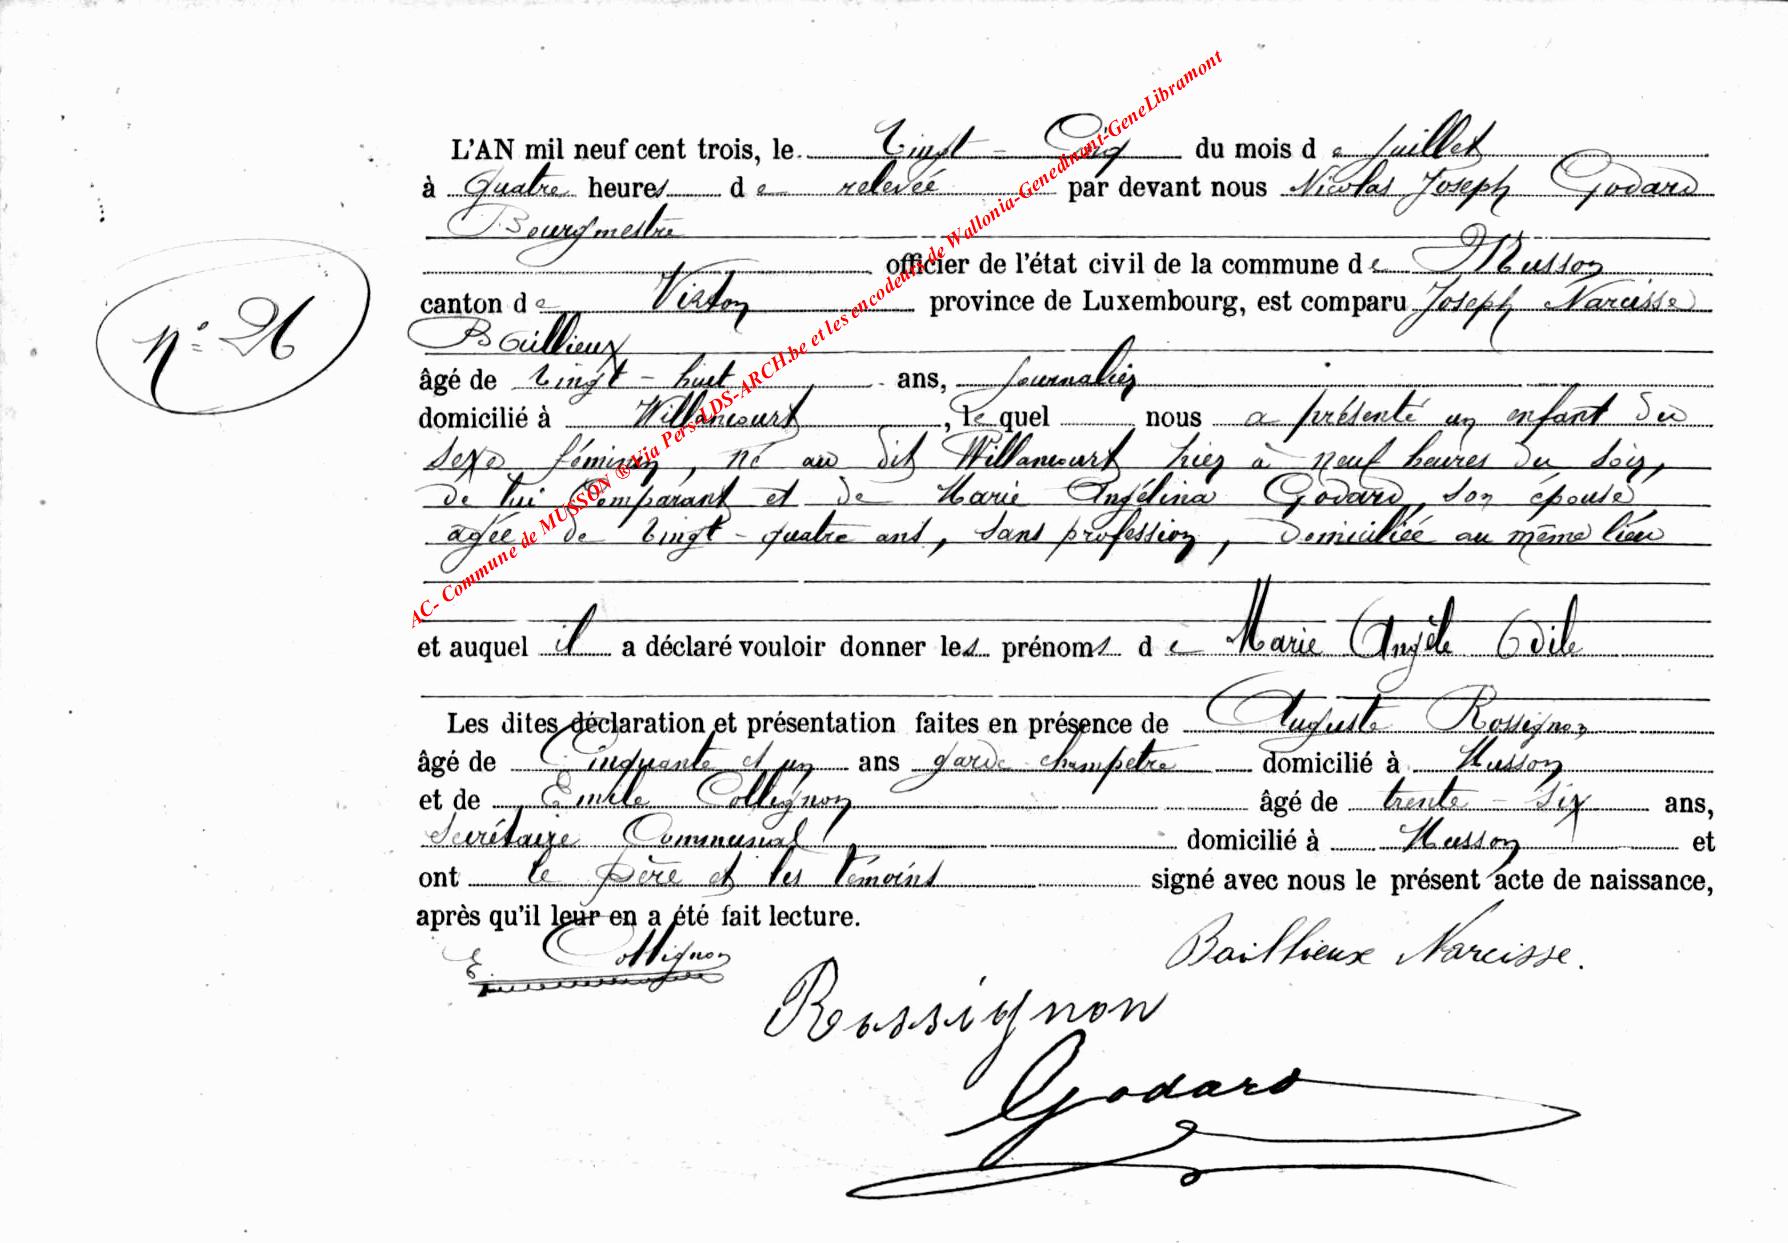 L'AN mil neuf cent trois, le Vingt-Cinq du mois de juillet
à quatre heures de relevée par devant nous Nicolas Joseph Godard
Bourgmestre
officier de l'état civil de la commune de Musson
n° 26
canton de Virton province de Luxembourg, est comparu Joseph Narcisse
Baillieux
âgé de vingt-huit ans, journalier
domicilié à Willancourt, le quel nous a présenté un enfant du
sexe féminin, né au dit Willancourt hier à neuf heures du soir,
de lui Comparant et de Marie Angélina Godard, son épouse,
âgée de vingt-quatre ans, sans profession, domiciliée au même lieu
et auquel il a déclaré vouloir donner les prénoms de Marie Angèle Odile
Les dites déclaration et présentation faites en présence de Auguste Rossignon
âgé de Cinquante et un ans garde champêtre domicilié à Musson
et de Emile Collignon âgé de trente-six ans,
Secrétaire Communal, domicilié à Musson et
ont le père et les témoins signé avec nous le présent acte de naissance,
après qu'il leur en a été fait lecture.
E. Collignon
Baillieux Narcisse.
Rossignon
Godard
AC- Commune de MUSSON ® Via Pers-LDS-ARCH.be et les encodeurs de Wallonia-Genedinant-GeneLibramont